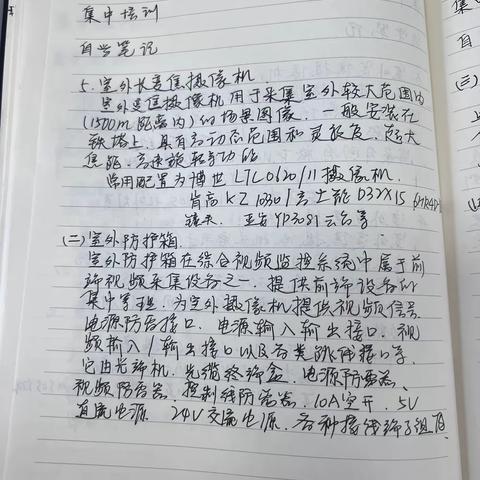 集中培训
自学笔记
5. 室外长变焦摄像机
室外变焦摄像机用于采集室外较大范围内
(1500m距离内)的场景图像。一般安装在
铁塔上,具有高动态范围和灵敏度、超大
焦距、高速旋转等功能
常用配置为博世 LTC0620/11摄像机.
肯高KZ1030/富士能D32X15
镜头. 亚安YD3081云台等
(二)室外防护箱.
室外防护箱在综合视频监控系统中属于前
端视频采集设备之一. 提供前端设备的
集中管理. 为室外摄像机提供视频信号
电源防雷接口. 电源输入输出接口. 视
频输入/输出接口以及各类跳线接口等.
它由光端机. 光缆终端盒. 电源防雷器、
视频防雷器、控制线防雷器、10A空开. 5V
直流电源、24V交流电源. 各种接线端子组成